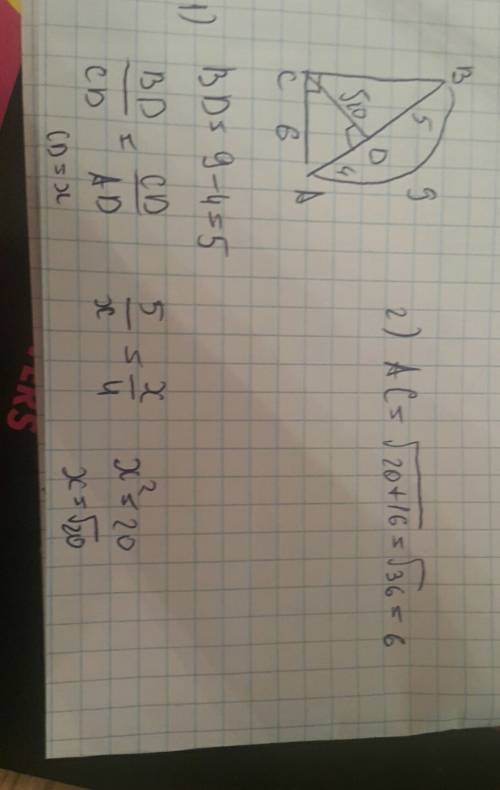 B
5
9
D
√20
4
C
6
A
1) BD = 9 - 4 = 5
BD/CD = CD/AD 5/x = x/4 x² = 20
CD = x x = √20
2) AC = √20+16 = √36 = 6
ERS